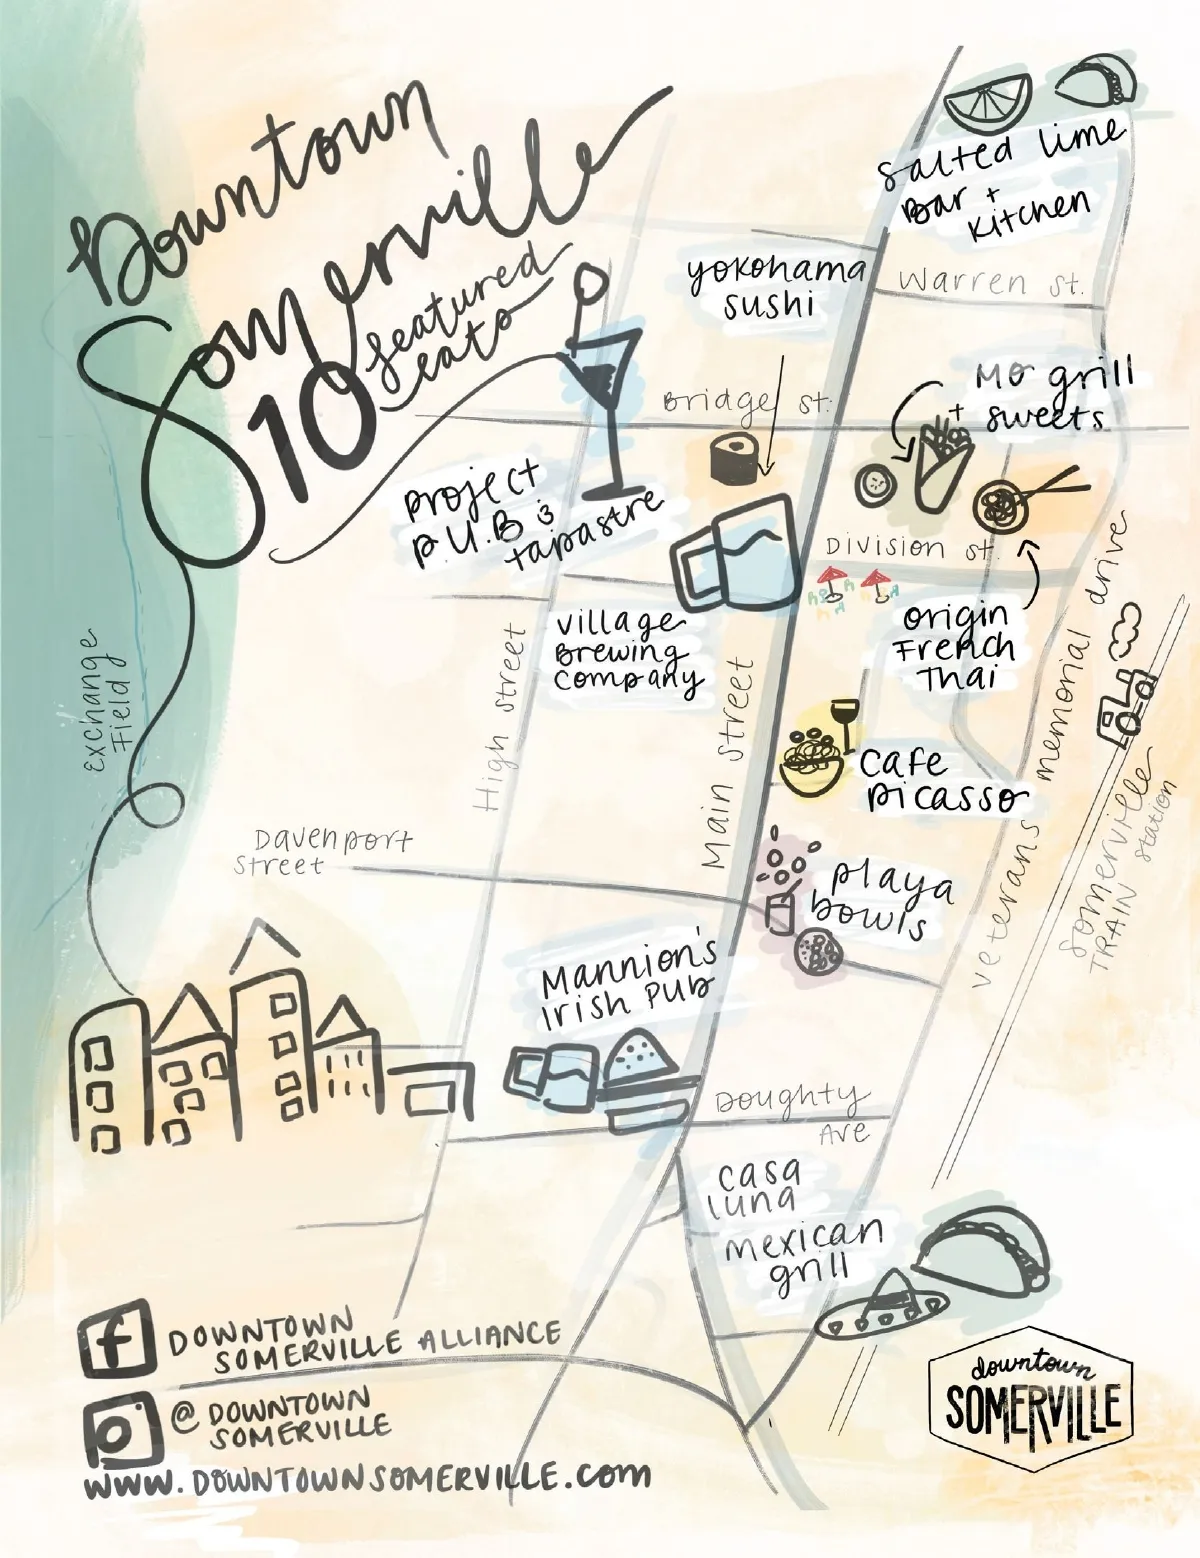 Downtown
Somerville
10 featured
eats
Salted lime
Bar +
Kitchen
Warren St.
yokohama
sushi
MO grill
+ sweets
Bridge St.
Project
P.U.B &
tapastre
Division St.
Village
Brewing
Company
origin
French
Thai
Exchange
Field
High Street
Main Street
veterans memorial drive
Somerville
TRAIN Station
Cafe
Picasso
Davenport
Street
playa
bowls
Mannion's
Irish Pub
Doughty
Ave
casa
luna
mexican
grill
f DOWNTOWN
SOMERVILLE ALLIANCE
@ DOWNTOWN
SOMERVILLE
WWW.DOWNTOWNSOMERVILLE.com
downtown
SOMERVILLE